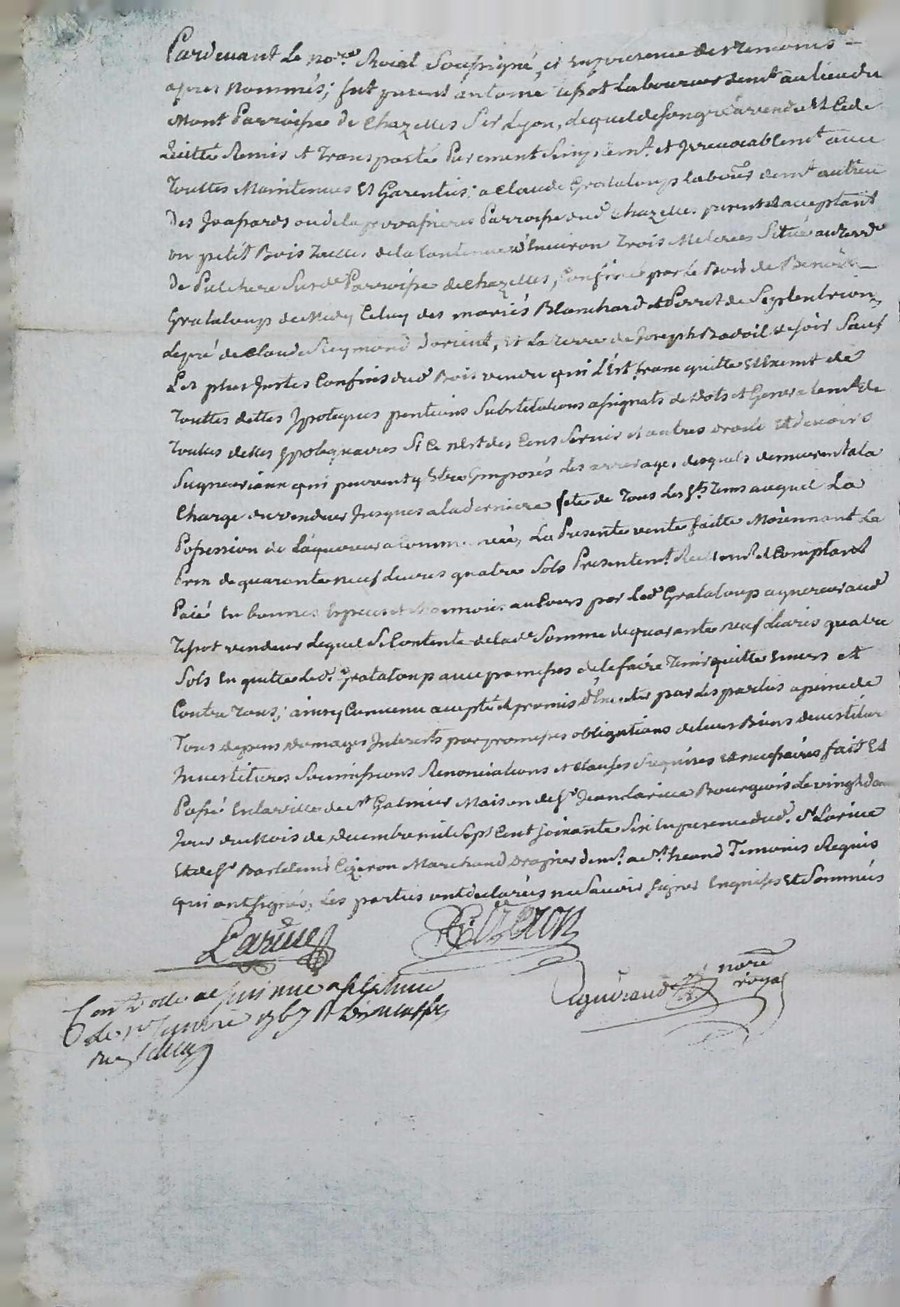 Pardevant Le nore. Roial Soussigné, et En presence des Temoins
apres Nommés; fut present antoine tissot Laboureur demt. au lieu du
Mont Parroisse de Chazelles Sur Lyon, Lequel de son gré a vendu Et Cedé
quitté Remis et Transporté Purement Simplemt. et Irrevocablemt. avec
Touttes Maintenues Et Garenties; a Claude Grataloup labour. demt. au lieu
des Parroisse dud. Chazelles present et acceptant
un petit Bois Taillis de la Contenue d'Environ Trois Meterées Situé au
de Sur de Parroisse de Chazelles, Confiné par Le Bois de Benoit
Grataloup de Midy Celuy des mariés Blanchard et Perret de Septentrion,
Le pré de Claude Reymond d'orient, Et La terre de Joseph Badoil de soir Sauf
Les plus Justes Confins dud. Bois vendu qui L'Est franc quitte Et Exempt de
Touttes dettes Ypoteques pentions Substitutions assignats de dots et Generalemt. de
Toutes dettes Ypotequaires Si Ce n'Est des Cens Servis et autres droits Et devoirs
Seigneuriaux qui peuvent y Estre Imposés Les arrerages desquels demeurent a la
Charge du vendeur Jusques a la derniere fete de Tous Les Sts. Tems auquel La
Possession de L'aquereur a Commencé, La Presente vente faitte Moiennant La
Prix de quarante neuf Livres quatre Sols Presentement Reellemt. et Comptant
Paié En bonnes Especes et Monnoie au Cours par Led. Grataloup aquereur aud.
Tissot vendeur Lequel Se Contente de lad. Somme de quarante neuf Livres quatre
Sols En quitte Led. Grataloup avec promesses de le faire Tenir quitte Envers Et
Contre Tous; ainsy Convenu accepté et promis d'Executer par Les parties a peine de
Tous depens domages Interests par promesses obligations de leurs Biens devestitures
Investitures Soumissions Renonciations et Clauses Requises Et necessaires fait Et
Passé En la ville de St. Galmier Maison de Sr. Jean Larüe Bourgeois Le vingt
Jour du Mois de decembre mil Sept Cent Soixante Six En presence dud. Sr. Larüe
Et de Sr. Barthelemi Cizeron Marchand drapier demt. a St. heand Temoins Requis
qui ont signés, Les parties ont declarées ne Savoir Signer Enquises Et Sommés
Larüe Cizeron
nore.
royal
Controllé a St
Le janvier 1767